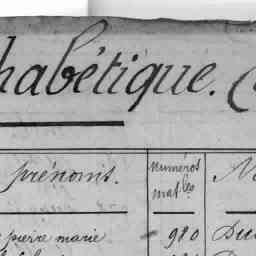 habétique.
prénoms. numéros
mat.les
pierre marie 980